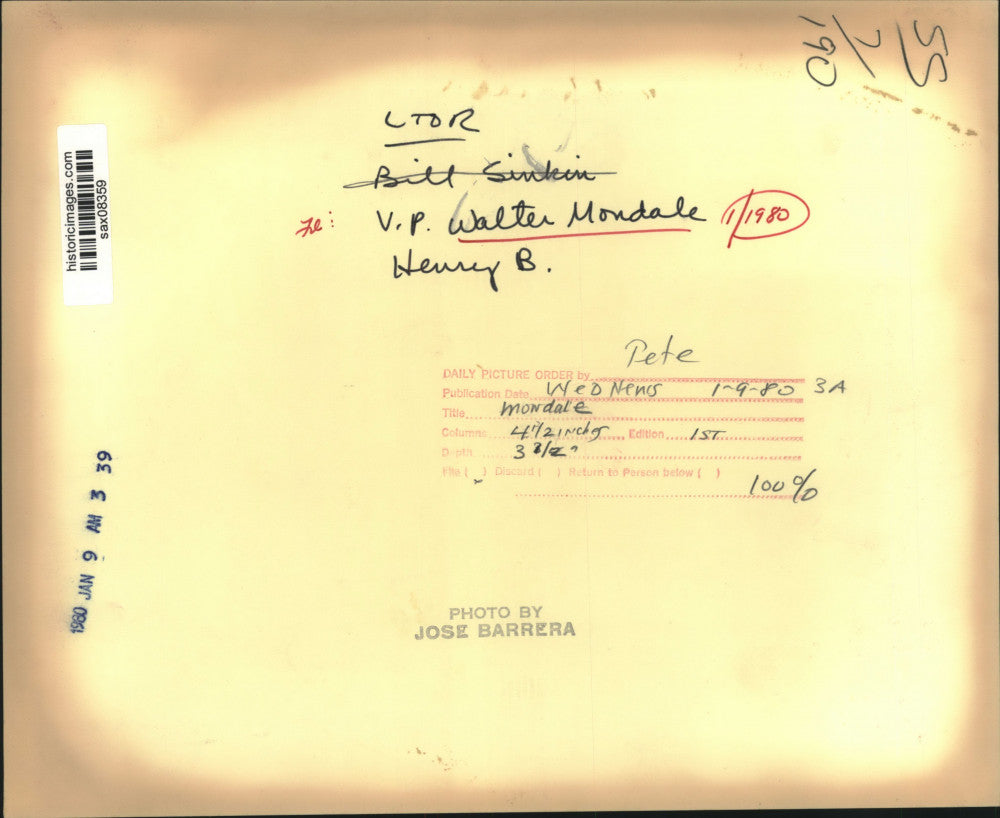 LTOR
Bill Sinkin
File: V.P. Walter Mondale 1/1980
Henry B.
historicimages.com
sax08359
Pete
DAILY PICTURE ORDER by
Publication Date Wed News 1-9-80 3A
Title mondale
Columns 4 1/2 inches Edition 1ST
Depth 3 3/2"
File ( ) Discard ( ) Return to Person below ( )
100%
1980 JAN 9 AM 3 39
PHOTO BY
JOSE BARRERA